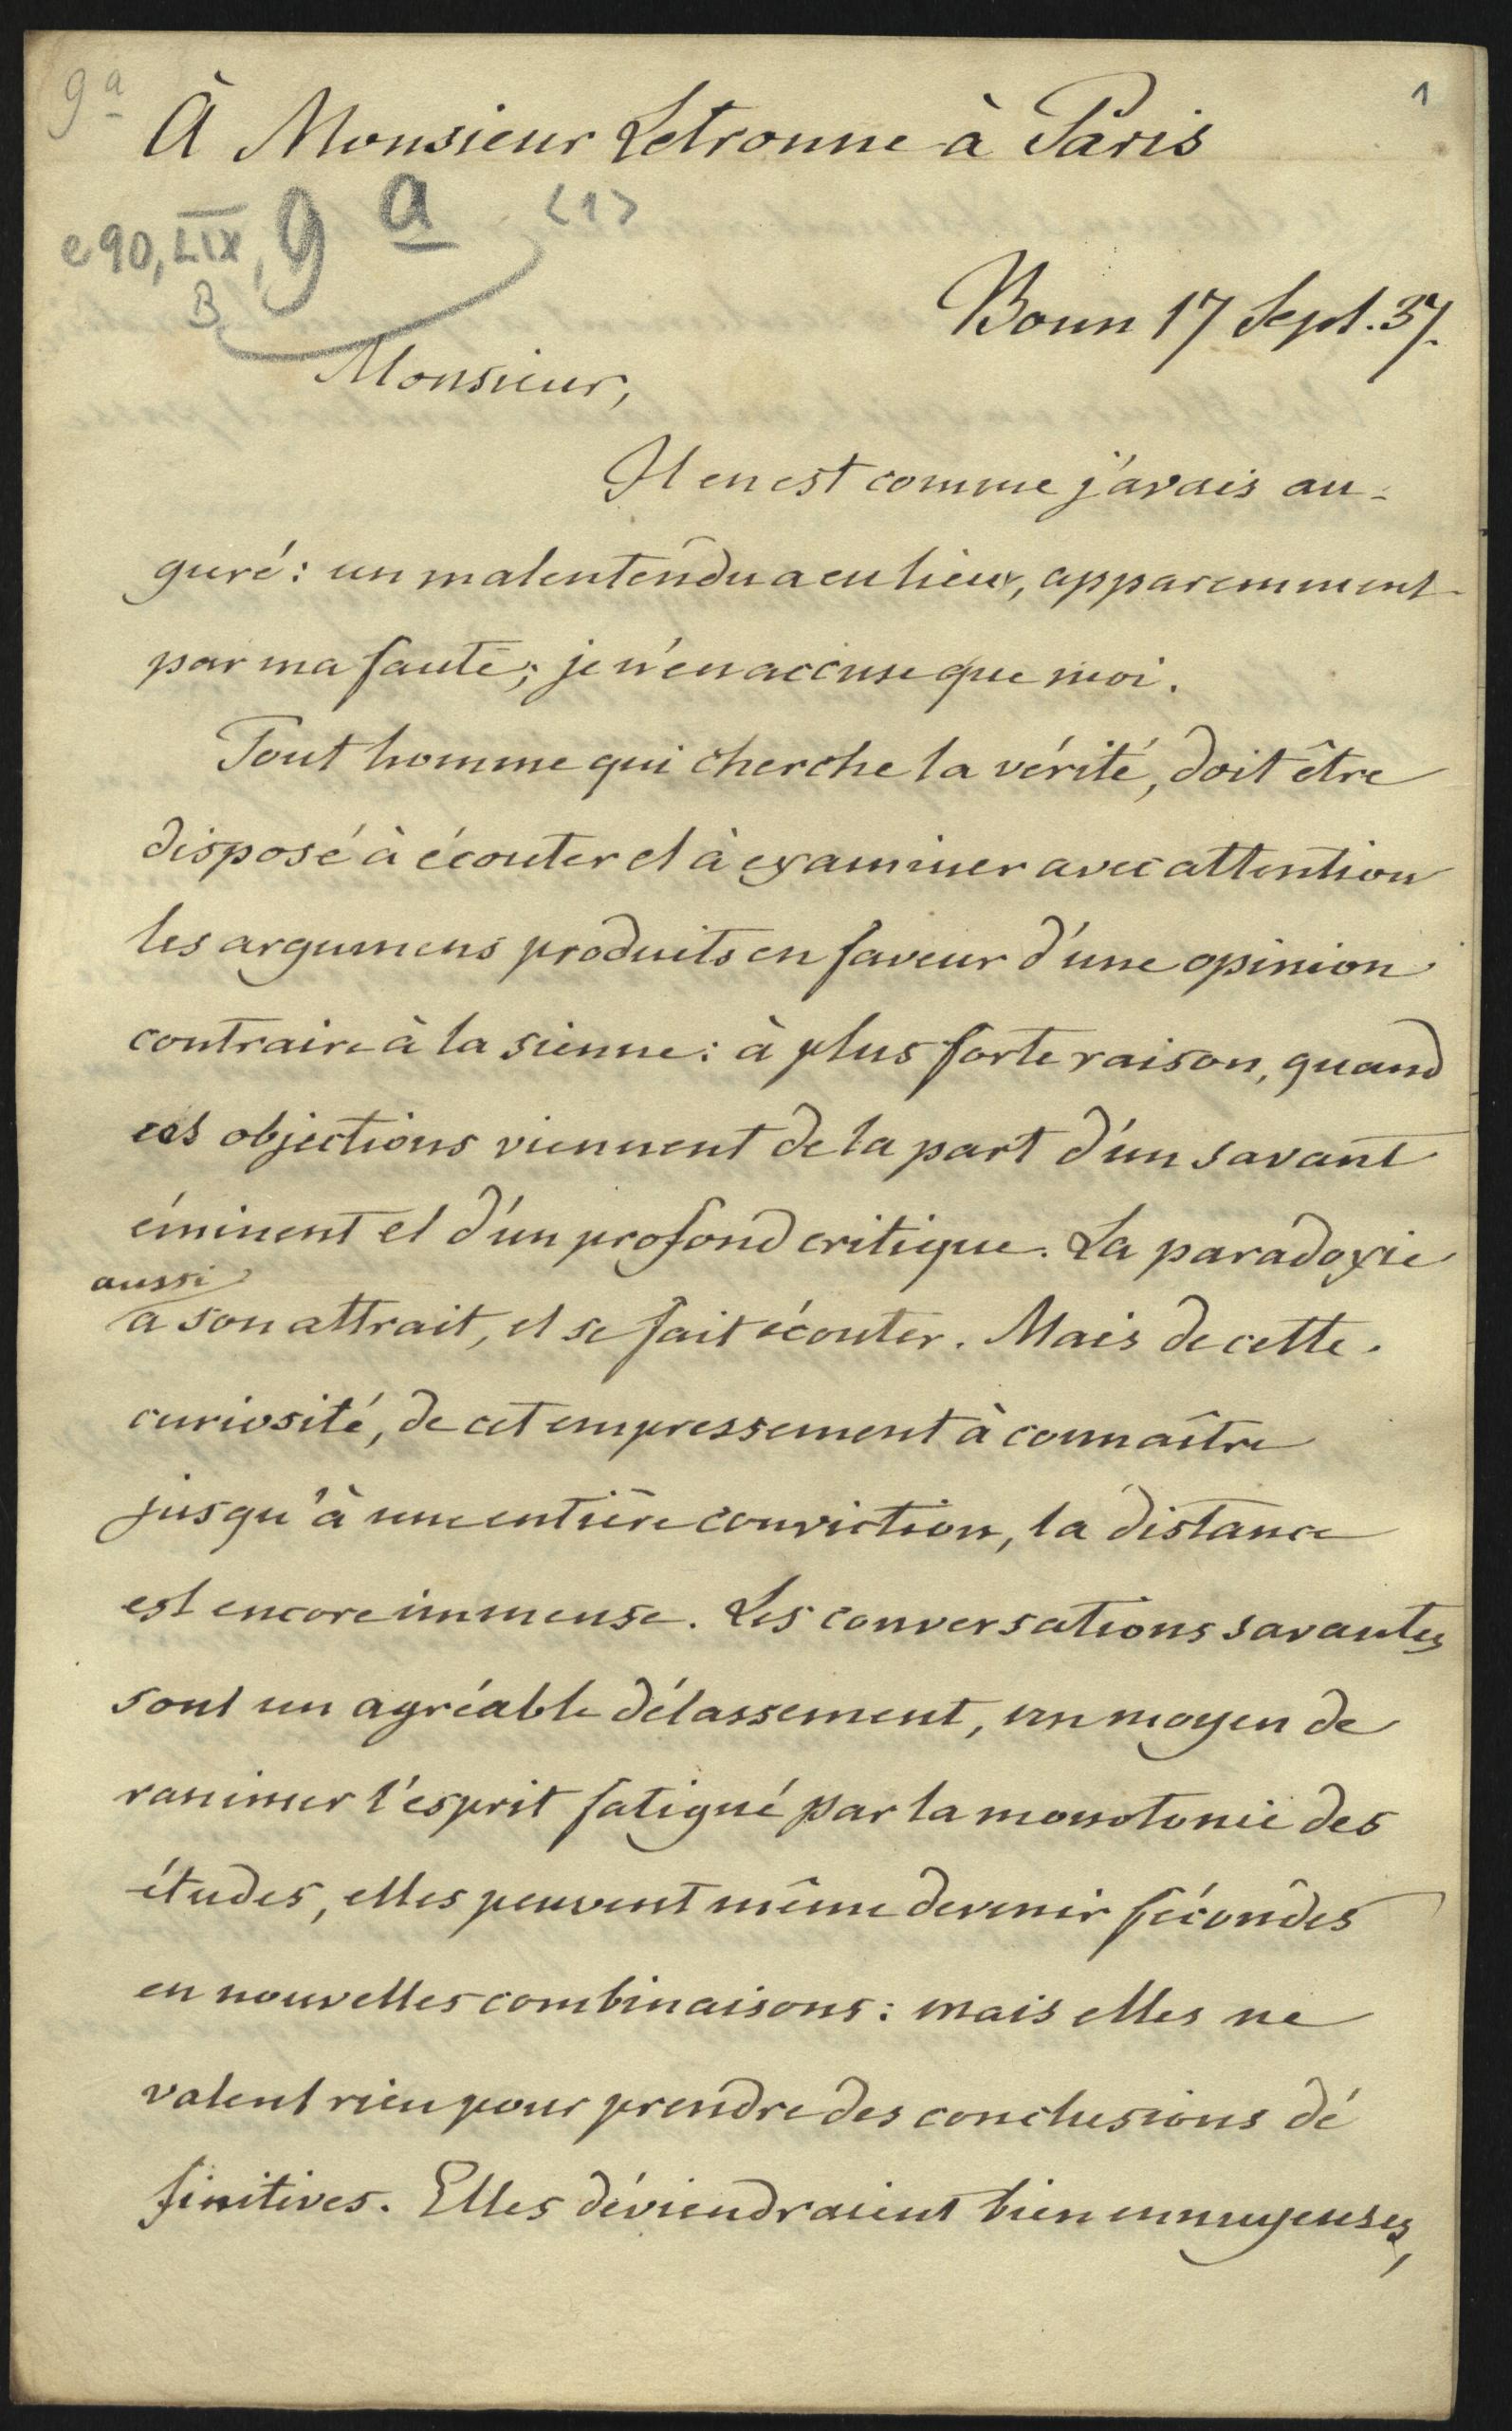 9a
1
À Monsieur Letronne à Paris
e 90, LIX, 9 a <1>
B
Bonn 17 Sept. 37.
Monsieur,
Il en est comme j'avais au-
guré: un malentendu a eu lieu, apparemment
par ma faute; je n'en accuse que moi.
Tout homme qui cherche la vérité, doit être
disposé à écouter et à examiner avec attention
les argumens produits en faveur d'une opinion
contraire à la sienne: à plus forte raison, quand
ces objections viennent de la part d'un savant
éminent et d'un profond critique. La paradoxie
aussi
a son attrait, et se fait écouter. Mais de cette
curiosité, de cet empressement à connaître
jusqu'à une entière conviction, la distance
est encore immense. Les conversations savantes
sont un agréable délassement, un moyen de
ranimer l'esprit fatigué par la monotonie des
études, elles peuvent même devenir fécondes
en nouvelles combinaisons: mais elles ne
valent rien pour prendre des conclusions dé
finitives. Elles déviendraient bien ennuyeuses,